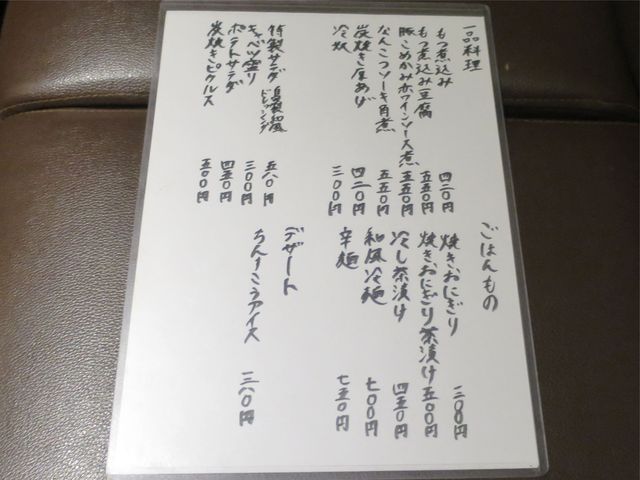 一品料理
もつ煮込み 四二〇円
もつ煮込み豆腐 五五〇円
豚こめかみ赤ワインソース煮 五五〇円
なんこつソーキ角煮 五五〇円
炭焼き厚あげ 四二〇円
冷奴 三〇〇円
特製サラダ 自家製和風ドレッシング 五八〇円
キャベツ盛り 三〇〇円
ポテトサラダ 四五〇円
炭焼きピクルス 五〇〇円
ごはんもの
焼きおにぎり 二〇〇円
焼きおにぎり茶漬け 五〇〇円
冷し茶漬け 四五〇円
和風冷麺 七〇〇円
辛麺 七五〇円
デザート
ちんすこうアイス 三八〇円